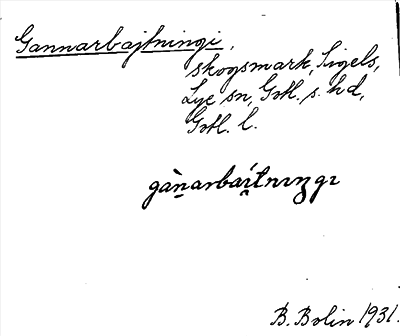 Gannarbajtningi,
skogsmark, Sigels,
Lye sn, Gotl. s. hd,
Gotl. l.
gànarbaítnıŋgı
B. Bolin 1931.